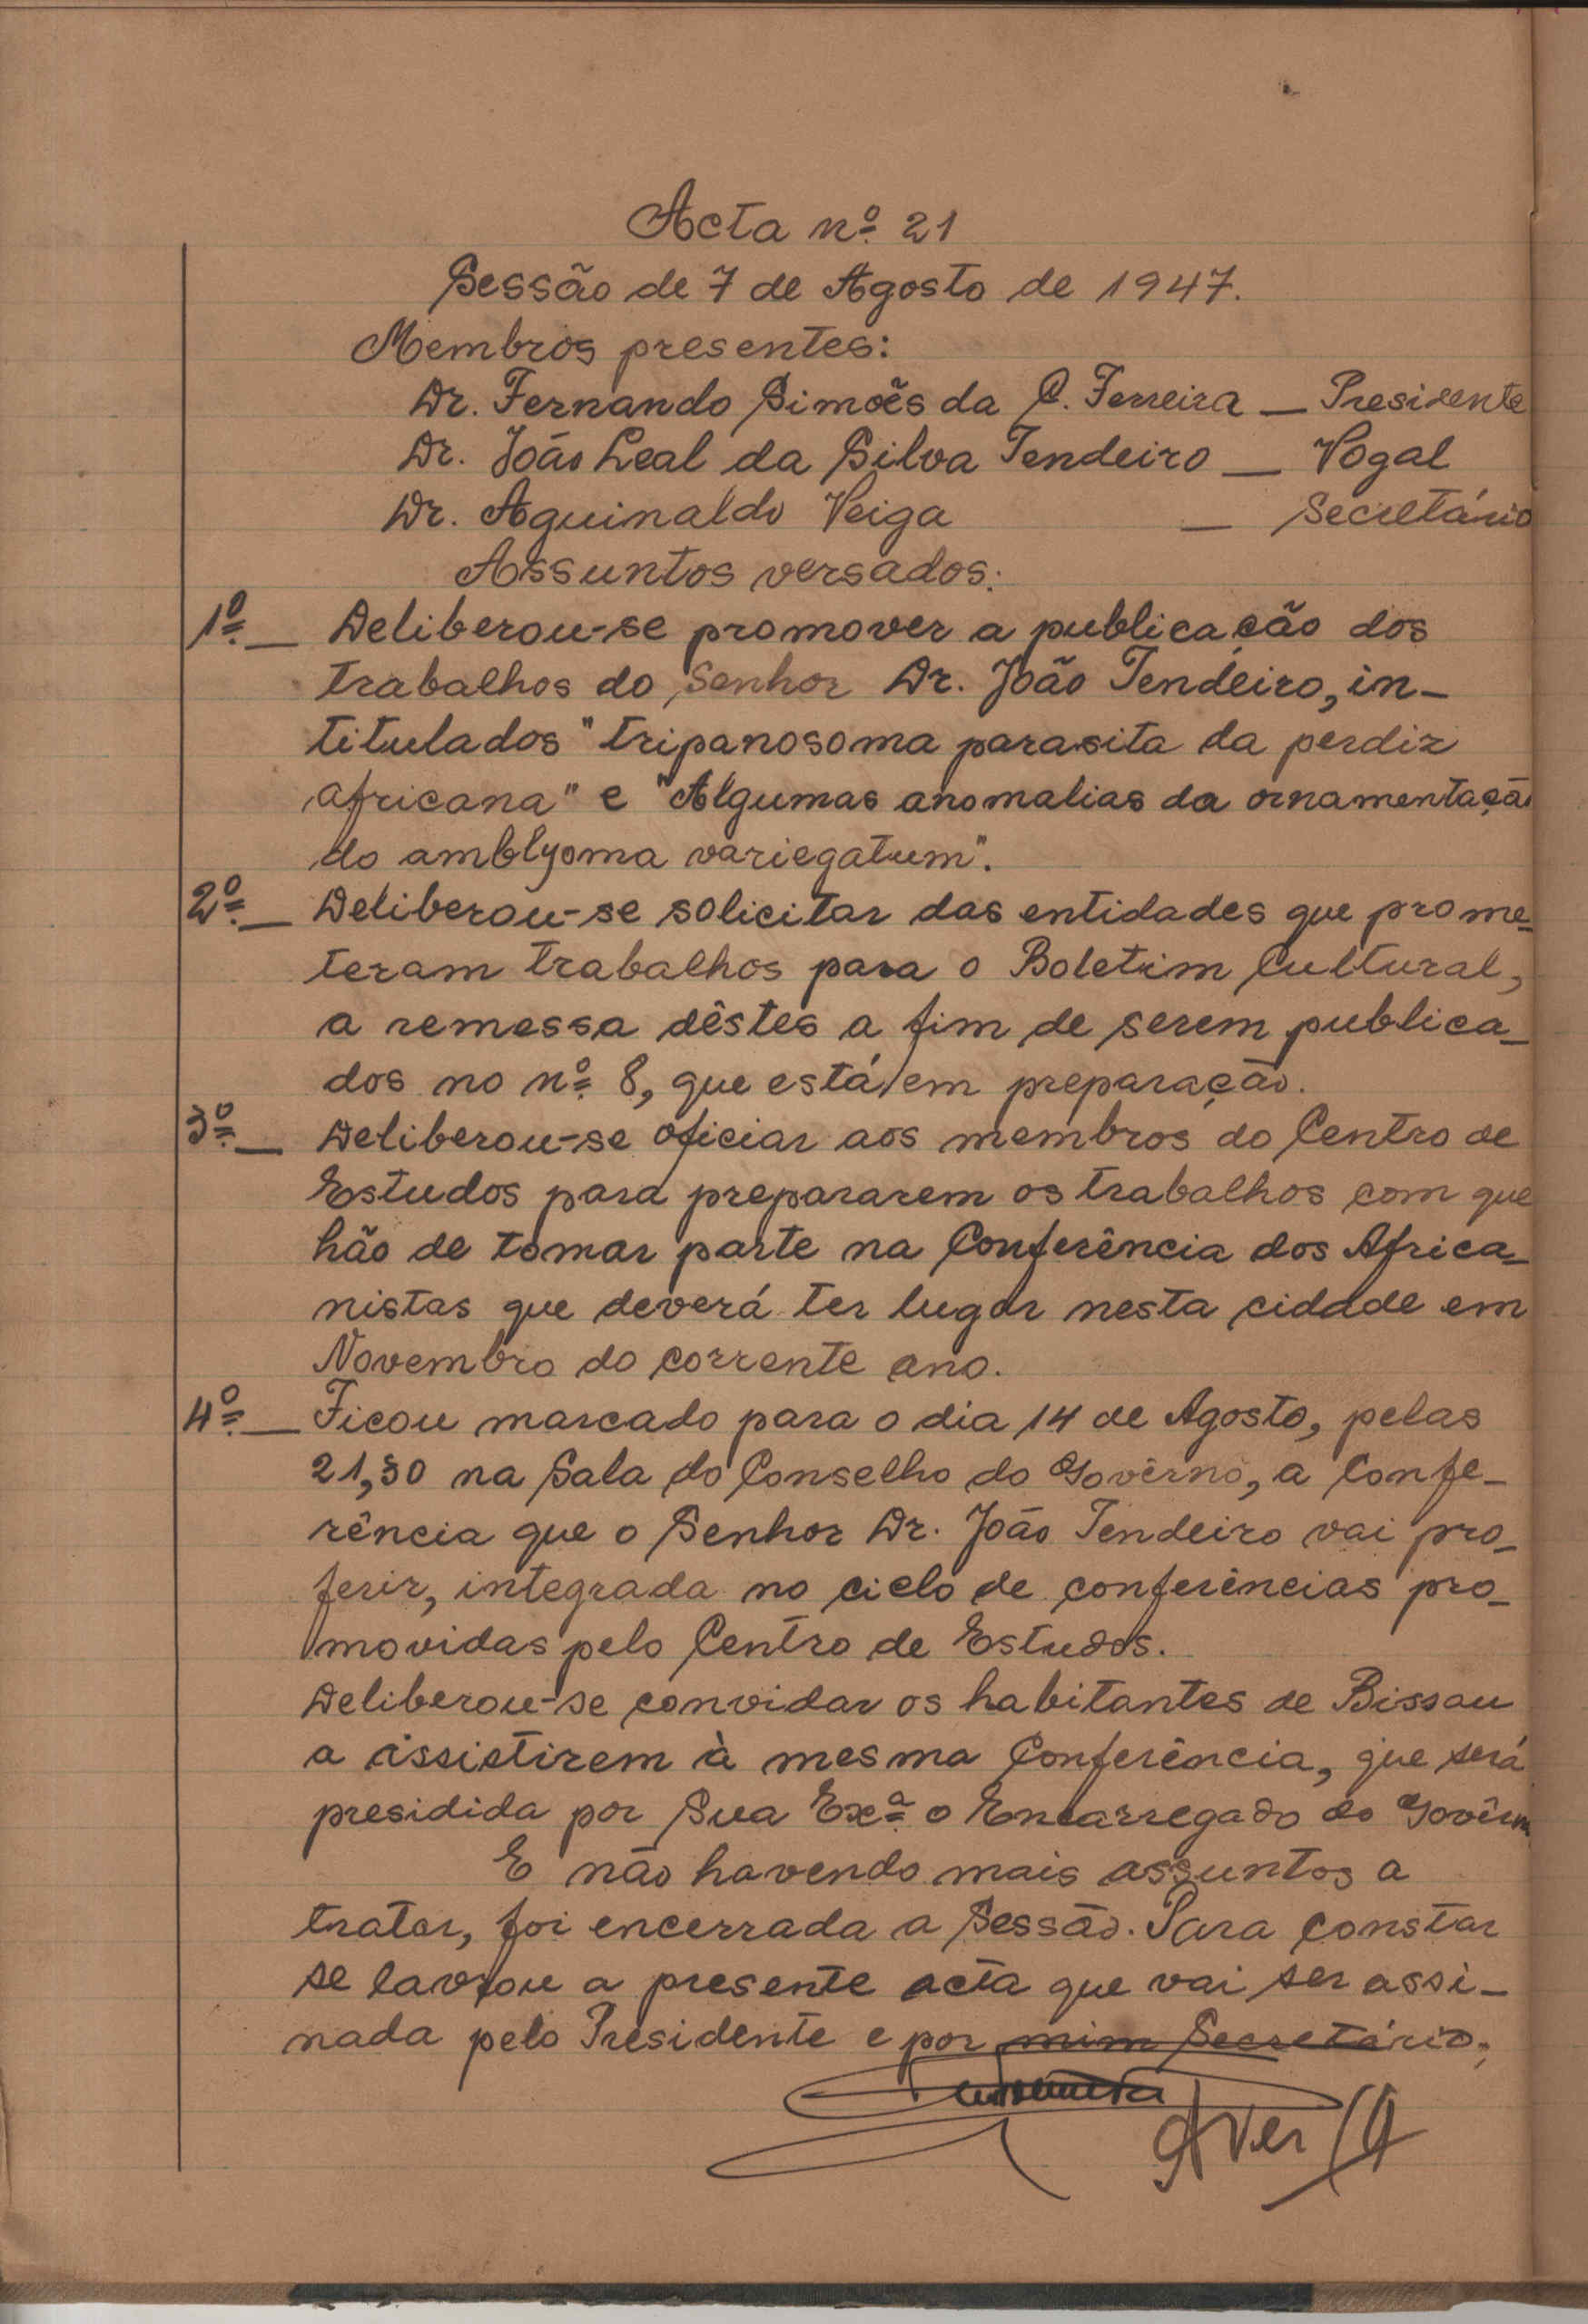 Acta nº 21
Sessão de 7 de Agosto de 1947.
Membros presentes:
Dr. Fernando Simões da C. Ferreira — Presidente
Dr. João Leal da Silva Tendeiro — Vogal
Dr. Aguinaldo Veiga — Secretário
Assuntos versados:
1º — Deliberou-se promover a publicação dos
trabalhos do Senhor Dr. João Tendeiro, in-
titulados "tripanosoma parasita da perdiz
africana" e "Algumas anomalias da ornamentação
do amblyoma variegatum".
2º — Deliberou-se solicitar das entidades que prome-
teram trabalhos para o Boletim Cultural,
a remessa dêstes a fim de serem publica-
dos no nº 8, que está em preparação.
3º — Deliberou-se oficiar aos membros do Centro de
Estudos para prepararem os trabalhos com que
hão de tomar parte na Conferência dos Africa-
nistas que deverá ter lugar nesta cidade em
Novembro do corrente ano.
4º — Ficou marcado para o dia 14 de Agosto, pelas
21,30 na Sala do Conselho do Govêrno, a Confe-
rência que o Senhor Dr. João Tendeiro vai pro-
ferir, integrada no ciclo de conferências pro-
movidas pelo Centro de Estudos.
Deliberou-se convidar os habitantes de Bissau
a assistirem à mesma Conferência, que será
presidida por Sua Exª o Encarregado do Govêrno
E não havendo mais assuntos a
tratar, foi encerrada a Sessão. Para constar
se lavrou a presente acta que vai ser assi-
nada pelo Presidente e por mim Secretário.